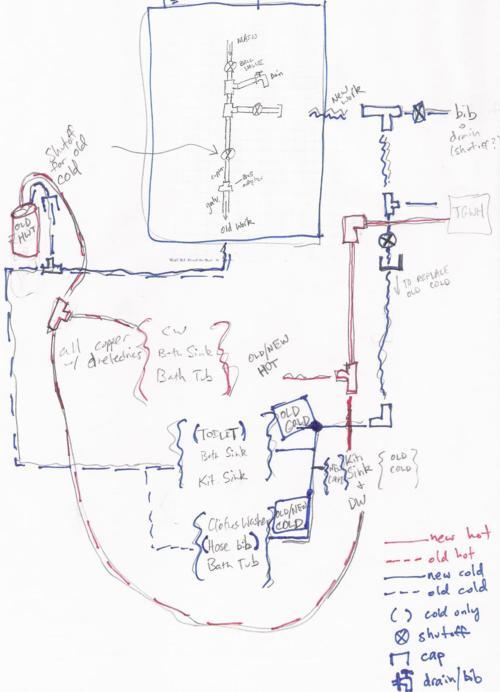 MAIN
BALL
VALVE
Drain
NEW
WORK
bib
drain
(shutoff?)
Shutoff
for old
cold
copper
gate
old work
OLD
HOT
TGWH
TO REPLACE
OLD COLD
all copper
w/ dielectrics
CW
Bath Sink
Bath Tub
OLD/NEW
HOT
(TOILET)
Bath Sink
Kit. Sink
OLD
COLD
Kit.
Sink
+
DW
OLD
COLD
Clothes Washer
(Hose bib)
Bath Tub
OLD/NEW
COLD
new hot
old hot
new cold
old cold
( ) cold only
shutoff
cap
drain/bib